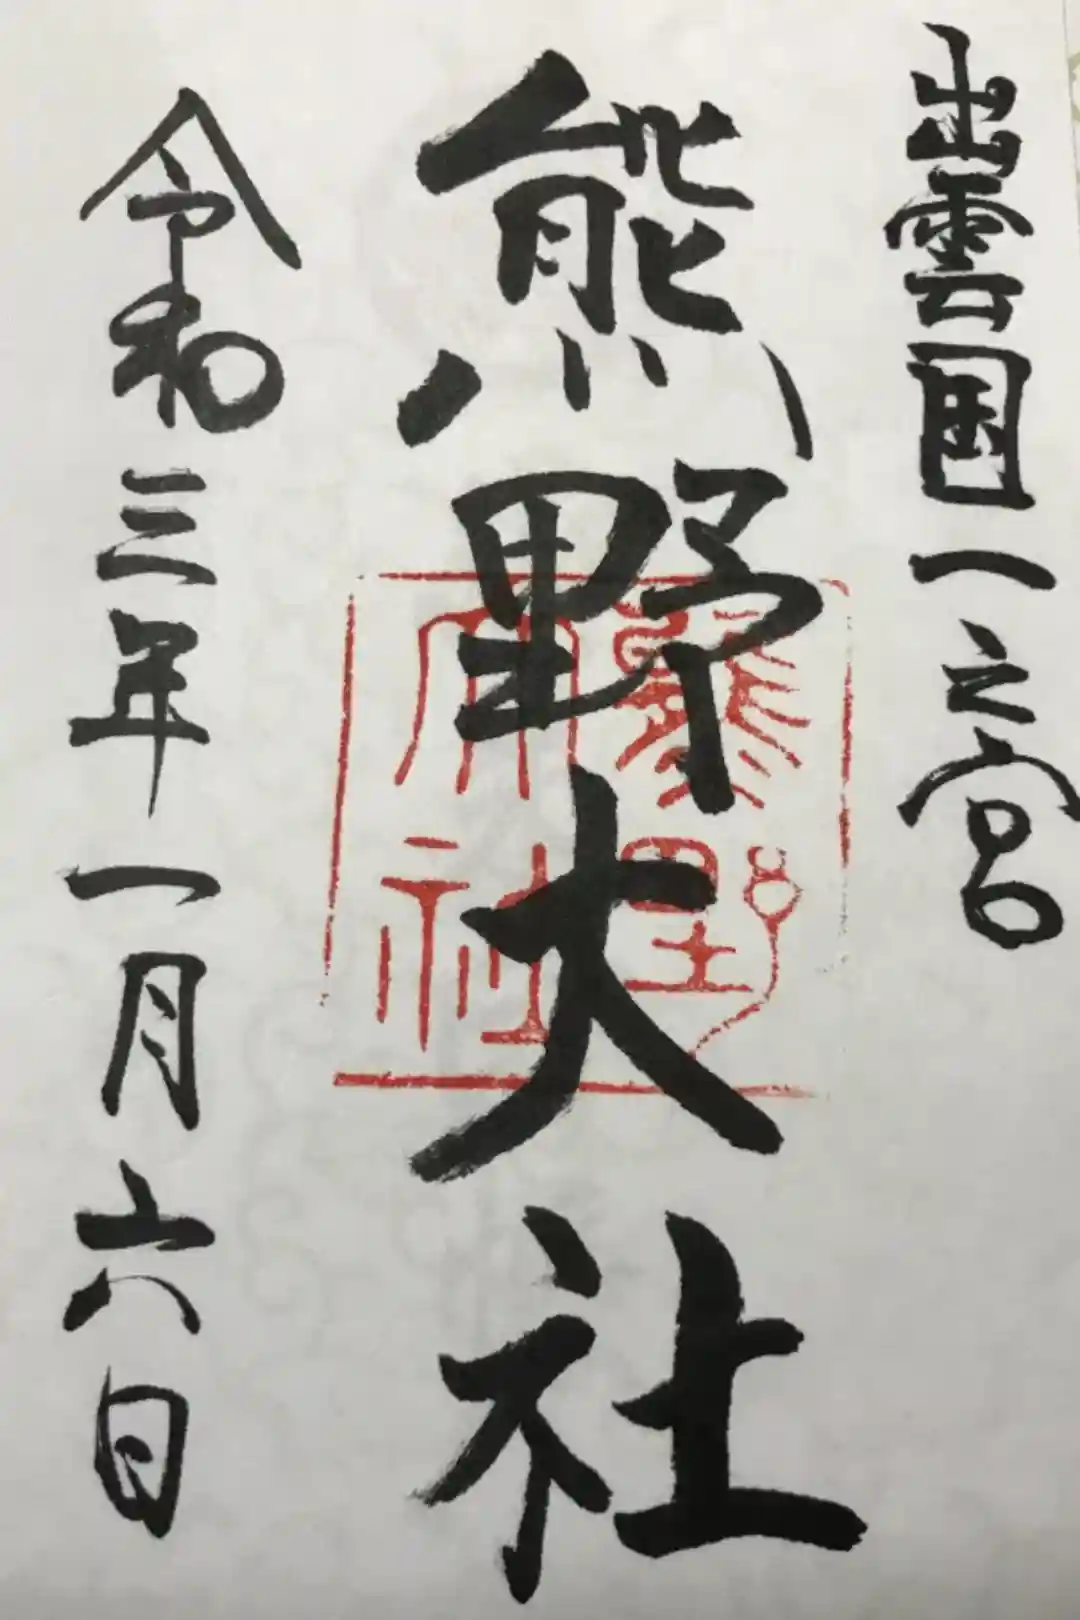 出雲国一之宮
熊野大社
熊野大社
令和三年一月六日